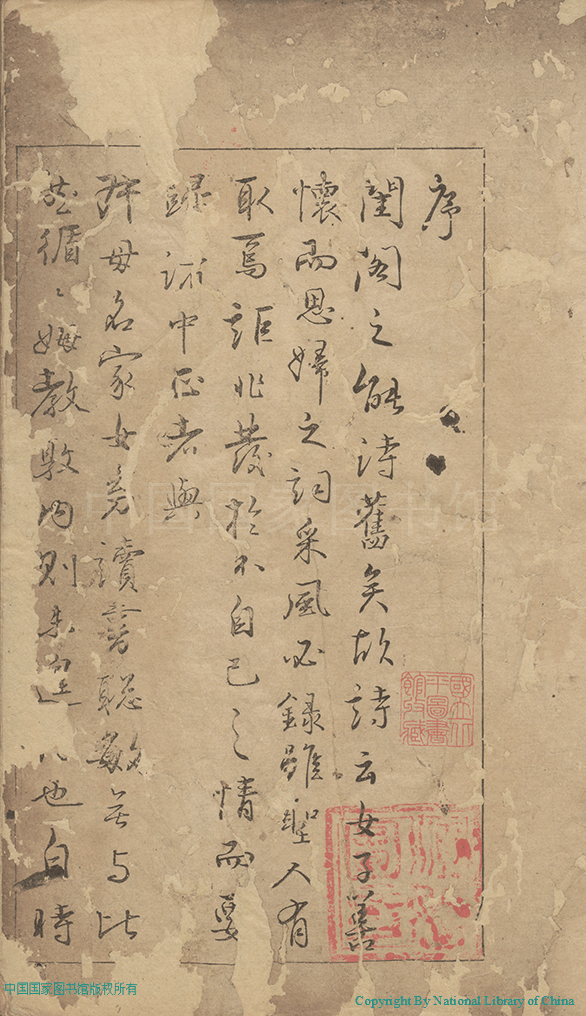 序
閨閣之能詩舊矣故詩云女子善
懷而思婦之詞采風必錄雖聖人有
取焉詎非發於不自已之情而要
歸於中正者與
母名家女羌讀書聰敏無與比
然循〻姆教敦內則未遑 也自時
國立北
平圖書
館收藏
中国国家图书馆版权所有
Copyright By National Library of China